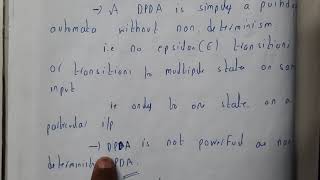 → A DPDA is simply a pushdo
automata without non determinism
i.e no epsilon (ε) transitions
or transitions to multiple state on same
input
ie only to one state on a
particular i/p
→ DPDA is not powerful as non
determinist PDA.